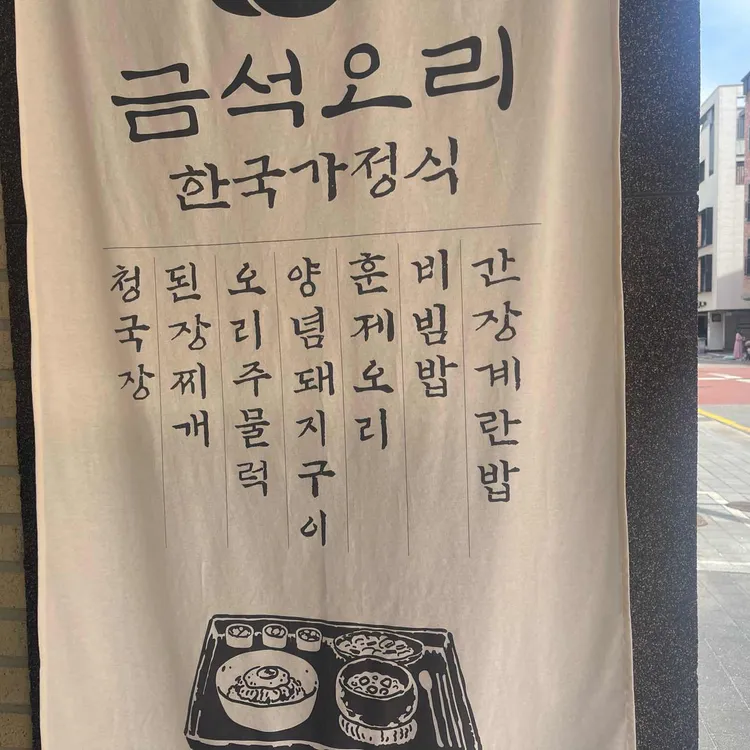 금석오리
한국가정식
청국장
된장찌개
오리주물럭
양념돼지구이
훈제오리
비빔밥
간장계란밥